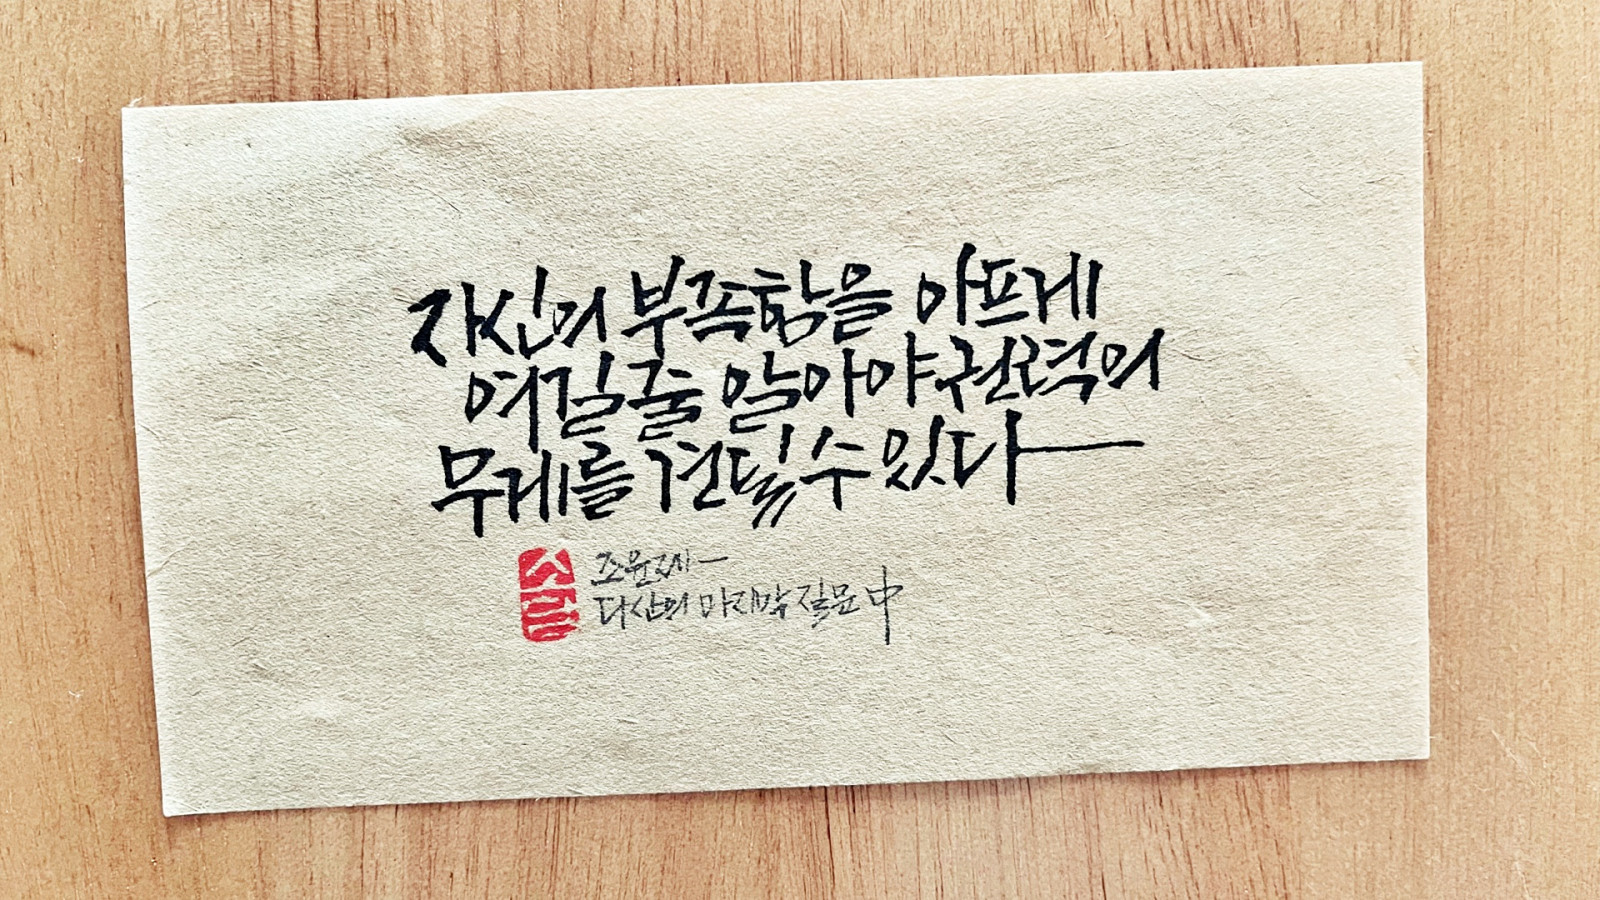 자신의 부족함을 아프게
여길줄 알아야 권력의
무게를 견딜 수 있다
조윤제
다산의 마지막 질문 中